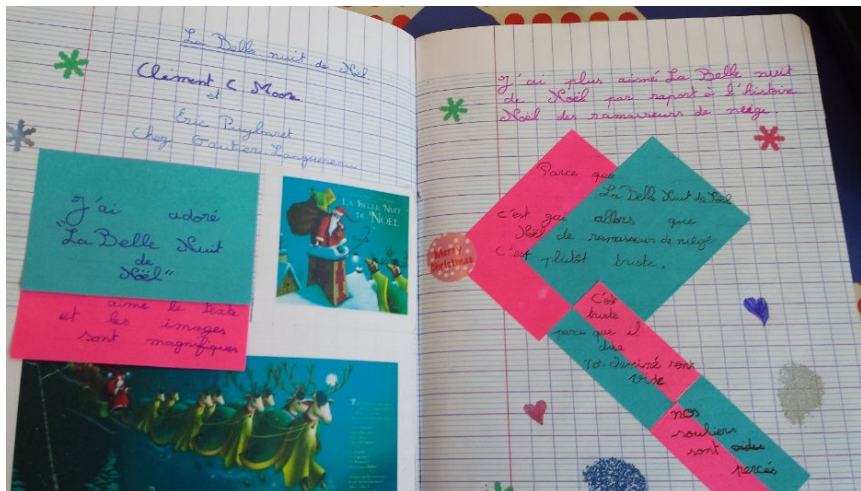 La Belle nuit de Noël
Clément C Moore
et
Eric Puybaret
Chez Gautier Languereau
J'ai adoré
"La Belle Nuit
de
Noël"
aime le texte
et les images
sont magnifiques
LA BELLE NUIT
DE NOËL
J'ai plus aimé La Belle nuit
de Noël par raport à l'histoire
Noël des ramasseurs de neige.
Merry
Christmas
Parce que
La Belle Nuit de Noël
c'est gai allors que
Noël de ramasseur de neige
C'est plutôt triste.
C'est
triste
parce que il
dise
sont
vide
nos
souliers
sont
percés